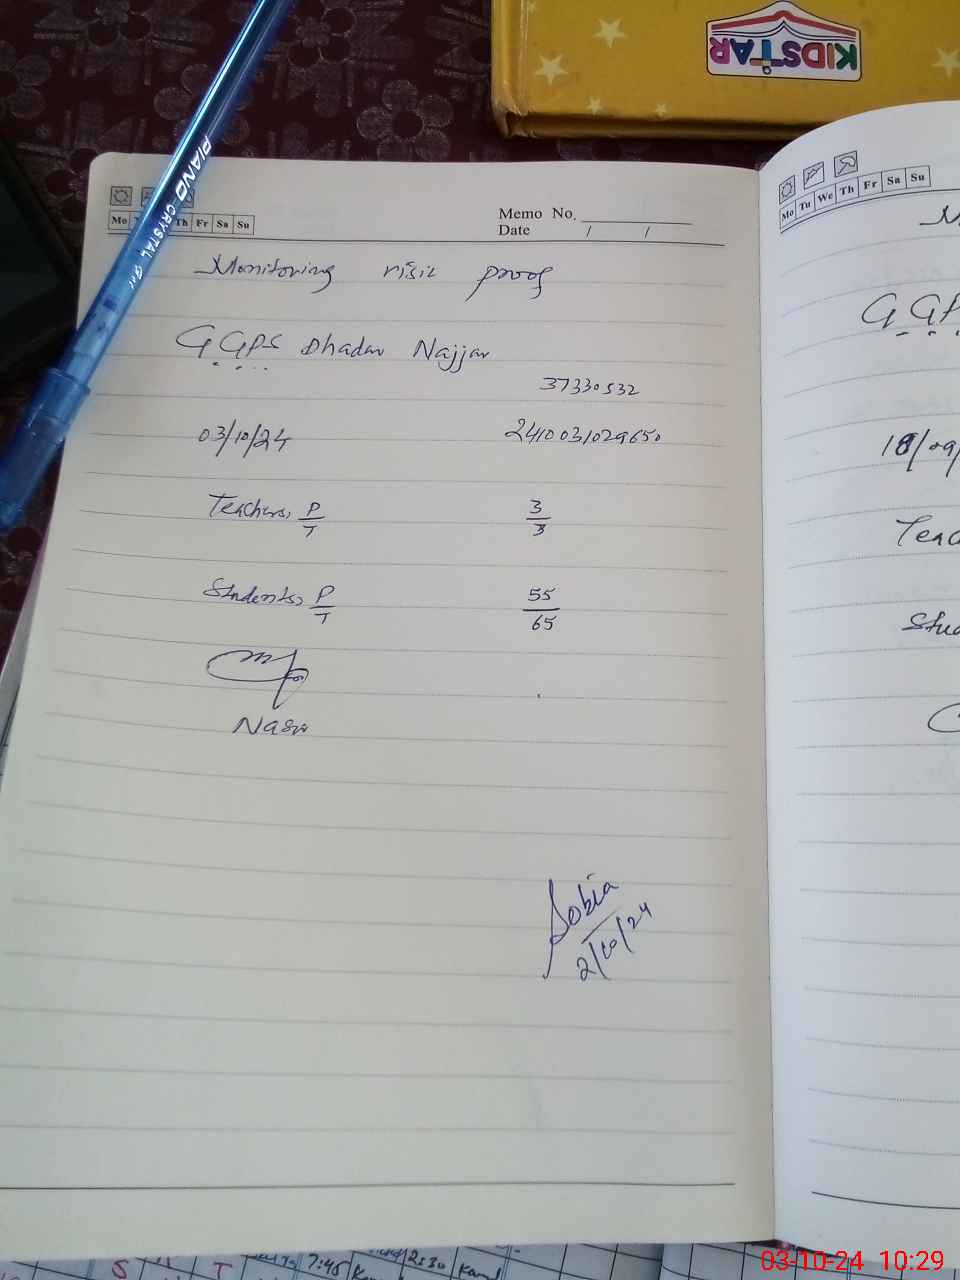 KIDSTAR
PIANO CRYSTAL Gel
Mo Th Fr Sa Su
Memo No.
Date / /
Monitoring visit proof
GGPS Dhadar Najjar
37330532
03/10/24 2410031029650
Teachers, P/T 3/3
Students, P/T 55/65
Sobia
2/10/24
Mo Tu We Th Fr Sa Su
G GP
18/09/
Teac
Stud
S T 7:45 2:30
03-10-24 10:29